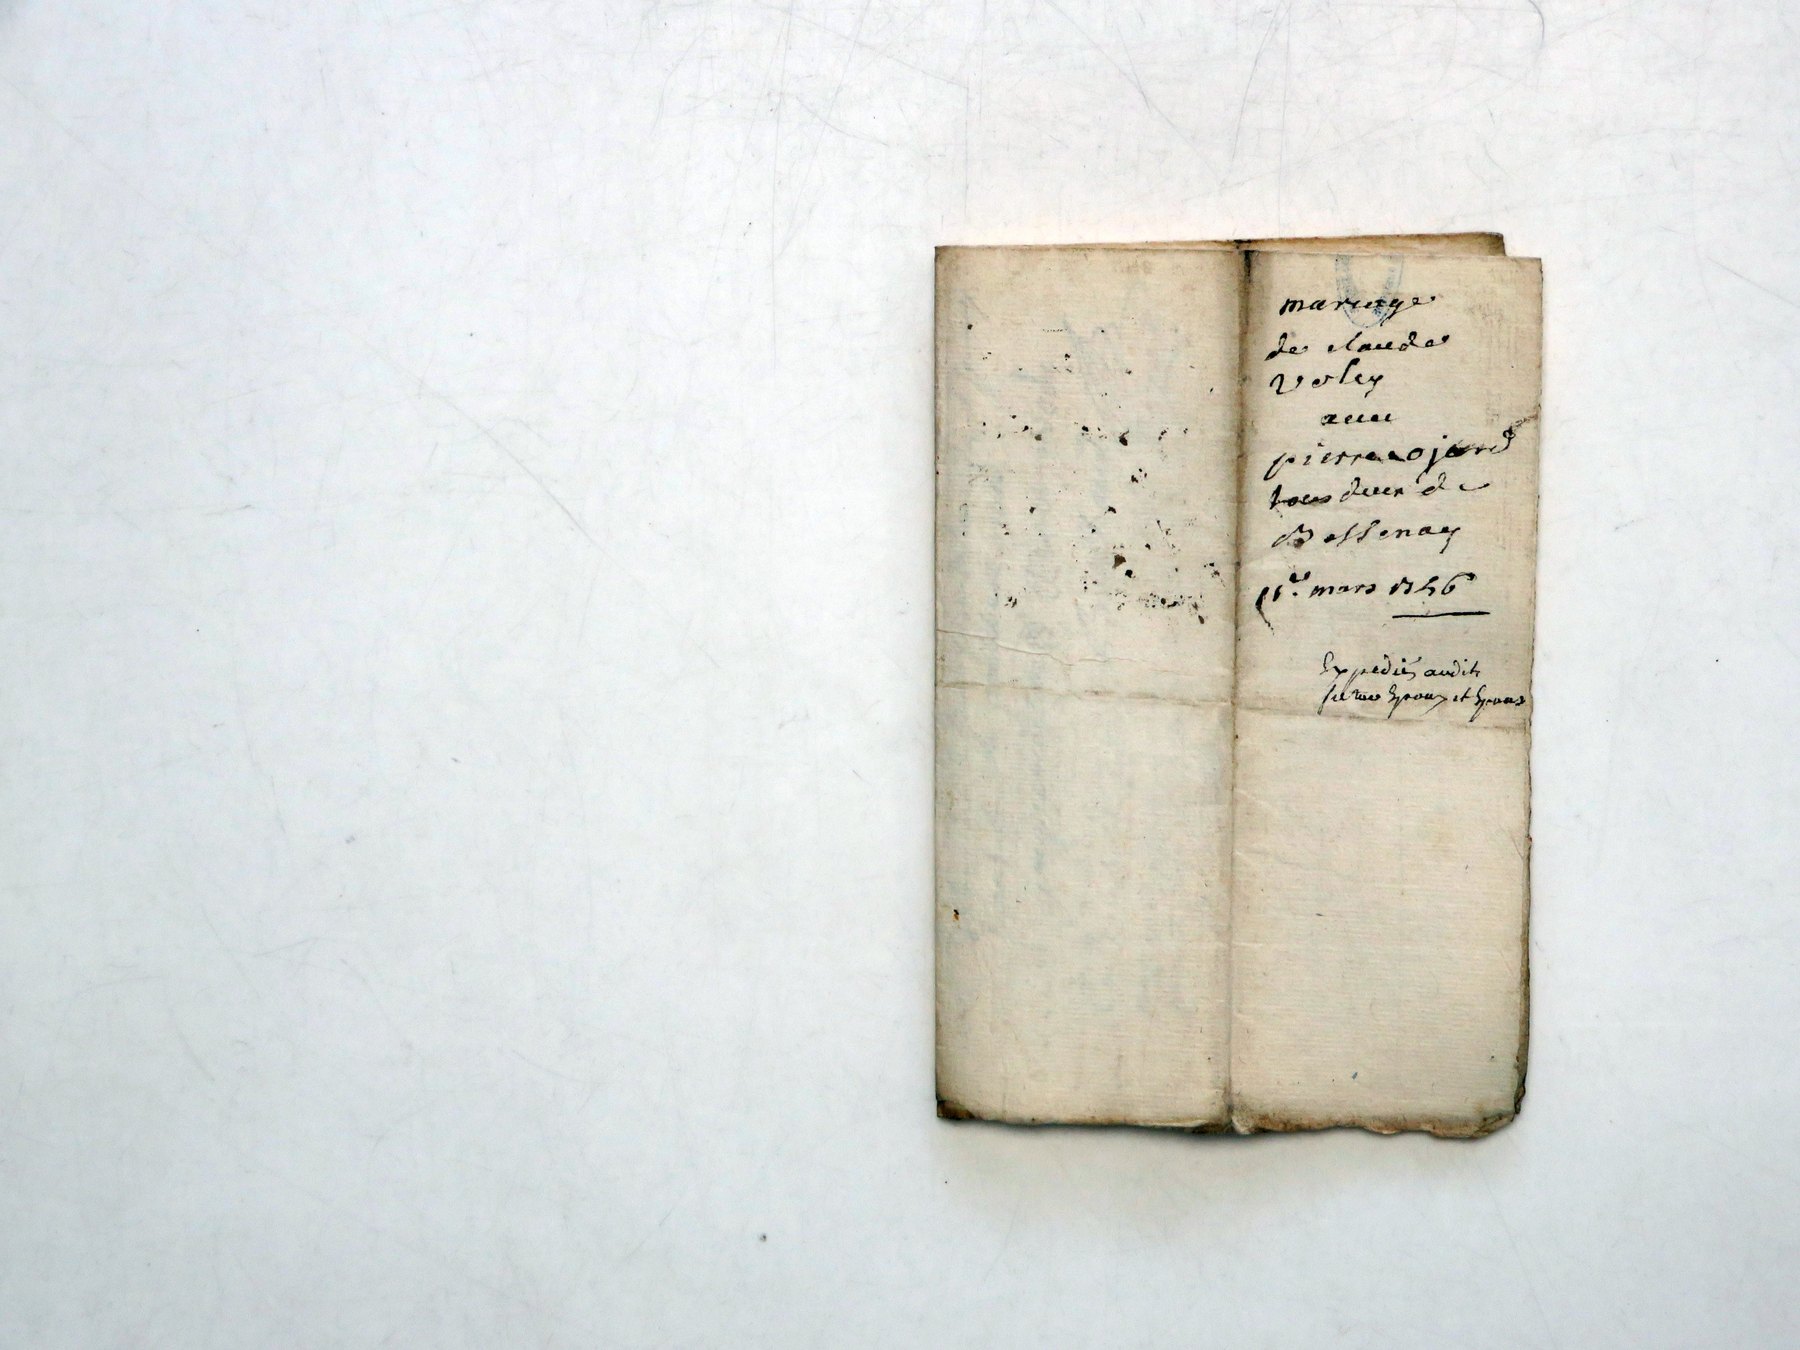 mariage
de claude
Voley
avec
pierre ojard
tous deux de
Bessenay
1er. mars 1746
Expediés audit
futurs Epoux et Epouse